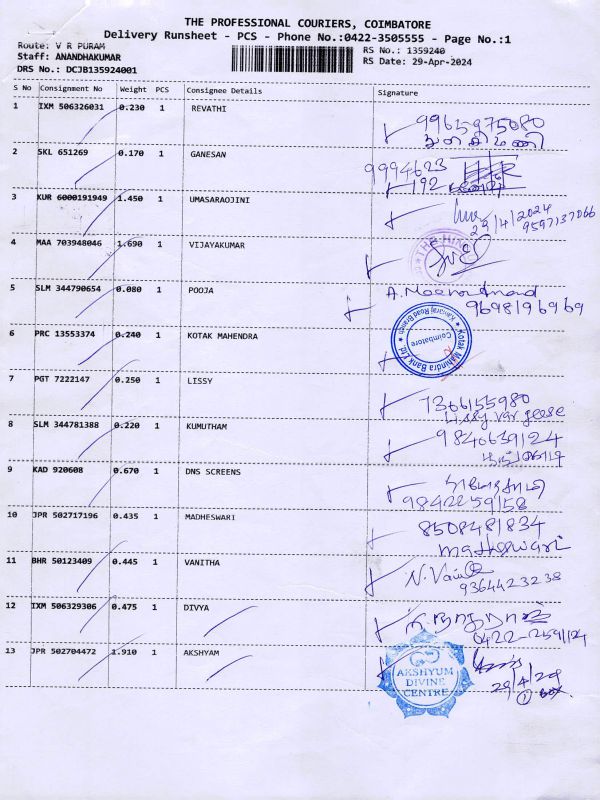 THE PROFESSIONAL COURIERS, COIMBATORE
Delivery Runsheet - PCS - Phone No.:0422-3505555 - Page No.:1
Route: V R PURAM
RS No.: 1359240
Staff: ANANDHAKUMAR
RS Date: 29-Apr-2024
DRS No.: DCJB135924001
S No Consignment No Weight PCS Consignee Details Signature
1 IXM 506326031 0.230 1 REVATHI
9965975080
2 SKL 651269 0.170 1 GANESAN
9994623
192
3 KUR 6000191949 1.450 1 UMASARAOJINI
29/4/2024
9597137066
4 MAA 703948046 1.690 1 VIJAYAKUMAR
5 SLM 344790654 0.080 1 POOJA
9698196969
6 PRC 13553374 0.240 1 KOTAK MAHENDRA
Kotak Mahindra Bank Ltd.
Kamaraj Road Branch
Coimbatore
7 PGT 7222147 0.250 1 LISSY
7306155980
Lissy Vargeese
8 SLM 344781388 0.220 1 KUMUTHAM
9840639124
9 KAD 920608 0.670 1 DNS SCREENS
9842259158
10 JPR 502717196 0.435 1 MADHESWARI
8508481834
Matheswari
11 BHR 50123409 0.445 1 VANITHA
9364423238
12 IXM 506329306 0.475 1 DIVYA
0422-2591124
13 JPR 502704472 1.910 1 AKSHYAM
AKSHYUM
DIVINE
CENTRE
29/4/24